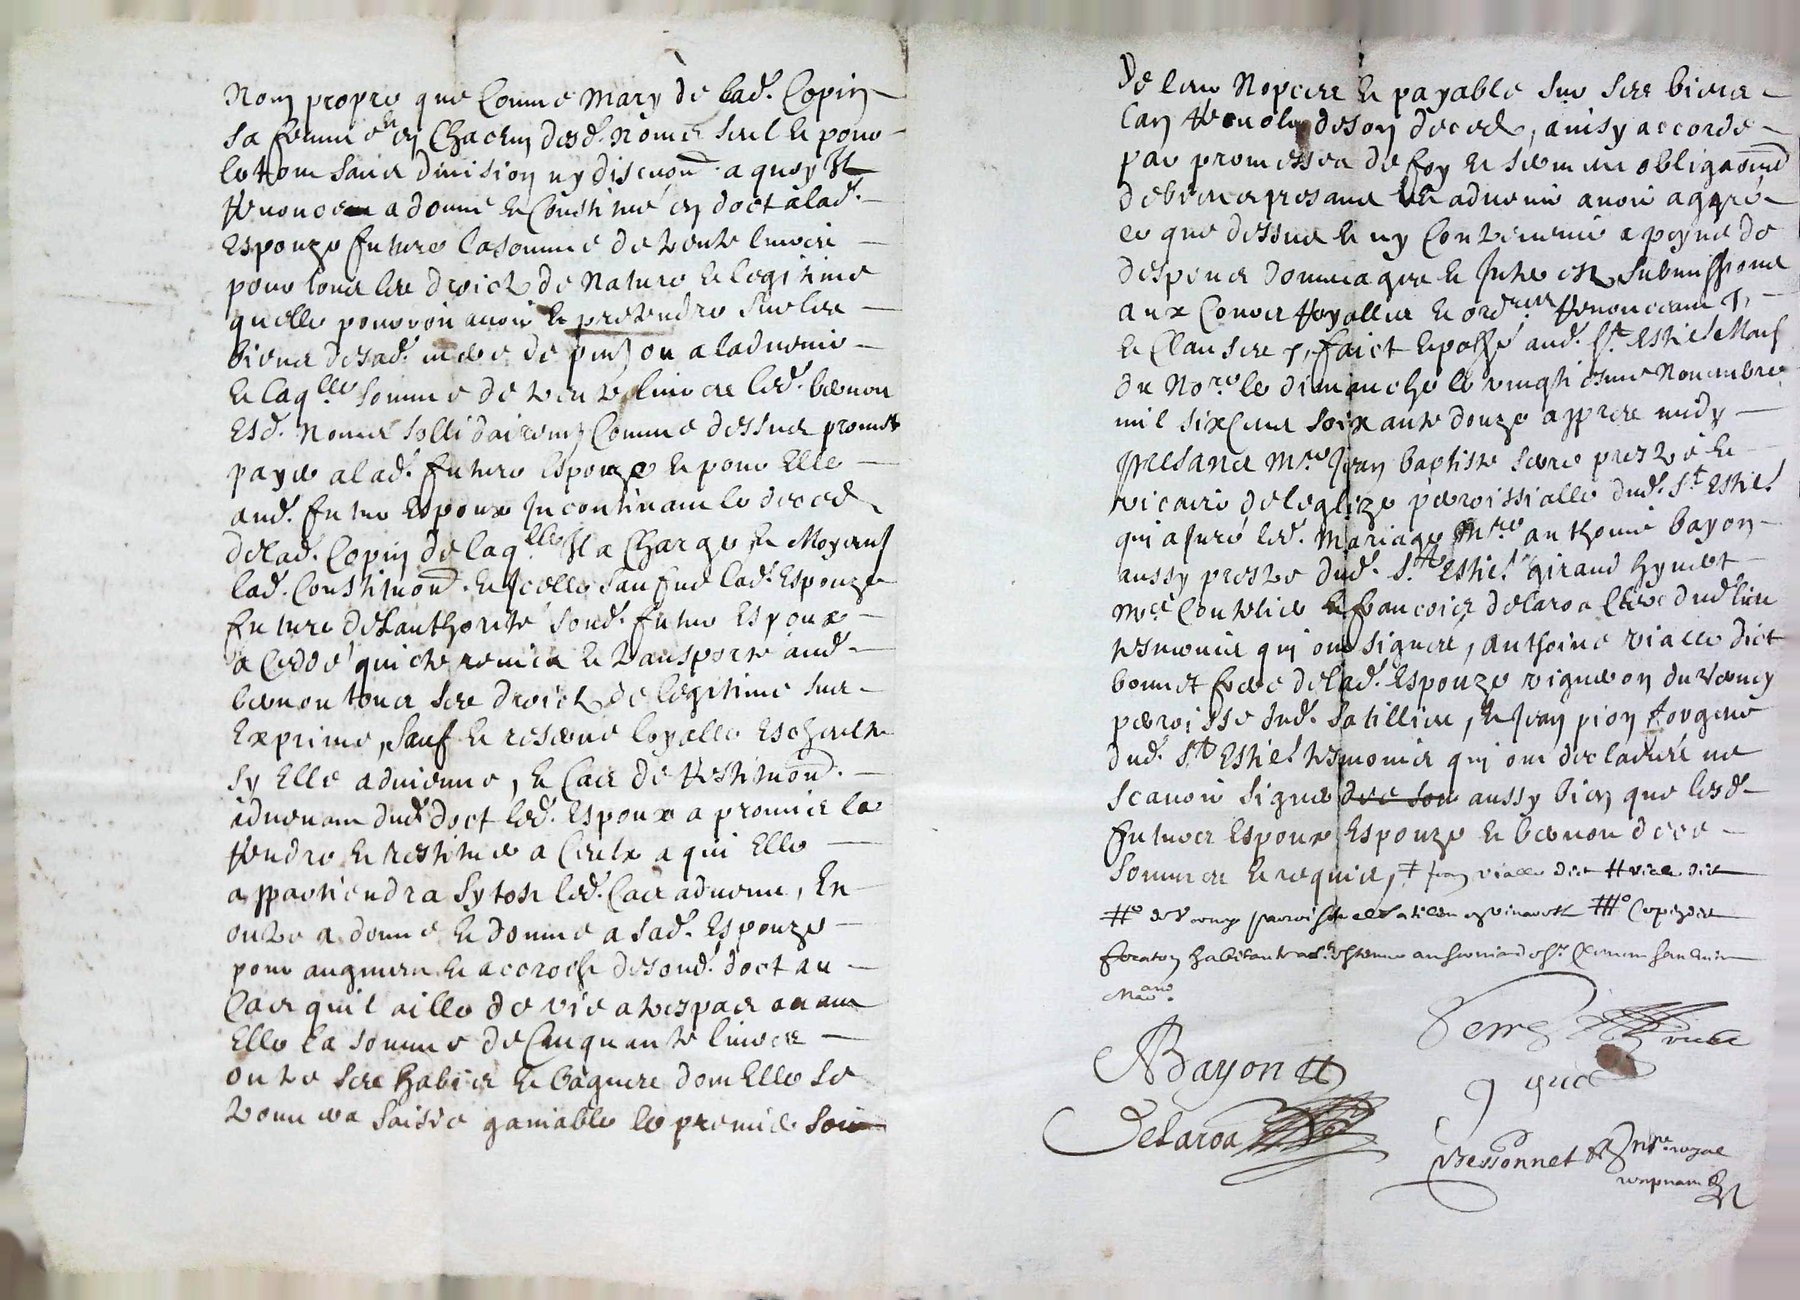 Nom propre que Comme mary de lad. Copin
sa femme et en Chacun desd. noms seul et pour
le tout sans division ny discuon. a quoy Il
Renonce a donné et Constitué en doct a lad.
Espouze future la somme de trente livres
pour tous ses droictz de Nature et legitime
quelle pouvoit avoir et pretendre sur les
biens de sad. mere de put ou a ladvenir
et laqlle somme de trente livres led. bernou
Esd. Noms sollidairemt Comme dessus promet
payer a lad. future Espouze et pour Elle
aud. futur Espoux Incontinant le deced
de lad. Copin de laqlle Il a Charge et Moyenant
lad. Constituon. et Icelle sauf lad. Espouze
future de lauthorité sond. futur Espoux
a Ceddé quicte remis et transporte aud.
bernou tous ses droictz de legitime sus
Exprimé, Sauf et reservé loyalle Escheutte
sy Elle advienne, et Cas de Restituon.
advenant dud. doct led. Espoux a promis le
Rendre et restituer a Ceulx a qui Elle
appartiendra sytost led. Cas advenu, En
outre a donné et donne a sad. Espouze
pour augment et accroch de sond. doct au
Cas quil aille de vie a trespas avant
Elle la somme de Cinquante livres
outre ses habitz et bagues dont Elle se
trouvera saisie ganiable le premier soir
De leurs Nopces et payable sur ses biens
Lan Revolu de son deced, ainsy accordé
par promesses de foy et serment obligaons
de biens presans et advenir avoir aggré
ce que dessus et ny Contrevenir a peyne de
despens dommages et Interestz submissions
aux Cours Royalles et ordres Renonceant
et Clauses, faict et passé aud. St Estie Maison
du Nore le dimanche le vingtiesme Novembre
mil sixCens soixante douze appres midy
presans Mre Jean baptiste serre prestre et
vicaire de leglize parroissialle dud. St Estie.
qui a Juré led. mariage Mre anthoine bayon
aussy prestre dud. St Estie. giraud hyvert
Me Coutelier et francois delaroa Clerc dud. lieu
tesmoins qui ont signés, anthoine vialle dict
bonnet frere de lad. Espouze vigneron du
parroisse dud. satillieu, et Jean pion
dud. St Estie. tesmoins qui ont declairés ne
scavoir signer aussy bien que lesd.
futurs Espoux Espouze et bernou de ce
sommes et requis, Jean vialle dict
ABayon
Delaroa
Serre vicre
Bessonnet Nre royal